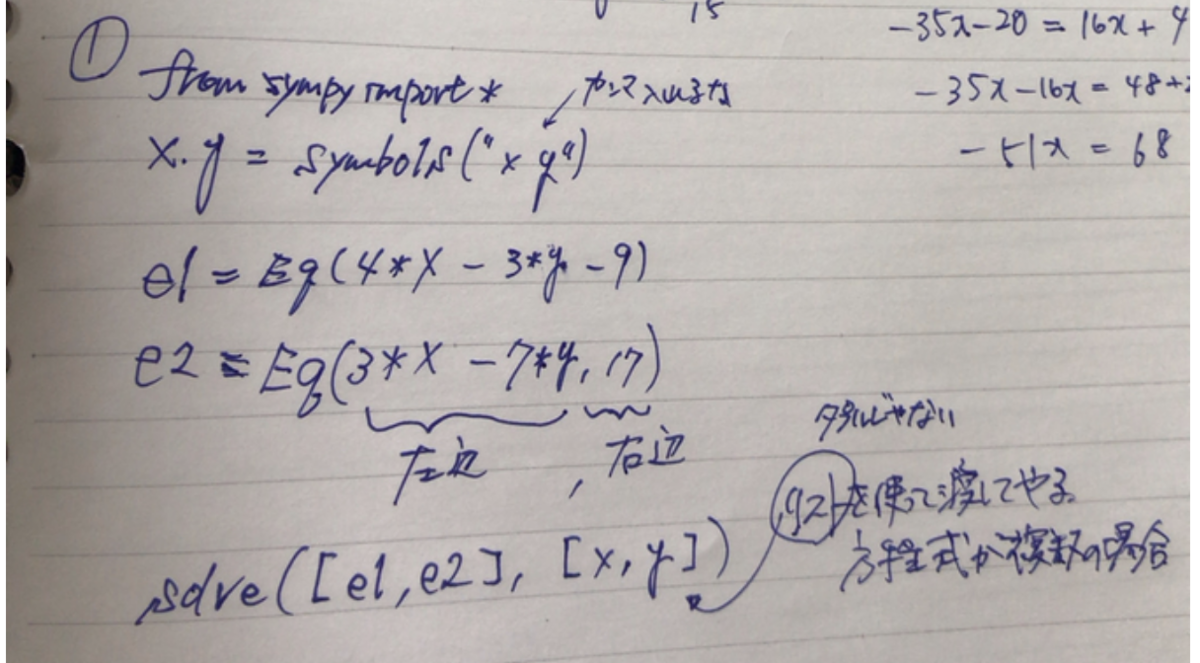 15
-35x-20 = 16x + 4
-35x-16x = 48+2
-51x = 68
①
from sympy import *
カンマ入れるな
x.y = symbols("x y")
e1 = Eq(4*x - 3*y - 9)
e2 = Eq(3*x - 7*y, 17)
左辺 , 右辺
タプルじゃない
リストを使って渡してやる
方程式が複数の場合
solve([e1,e2], [x,y])